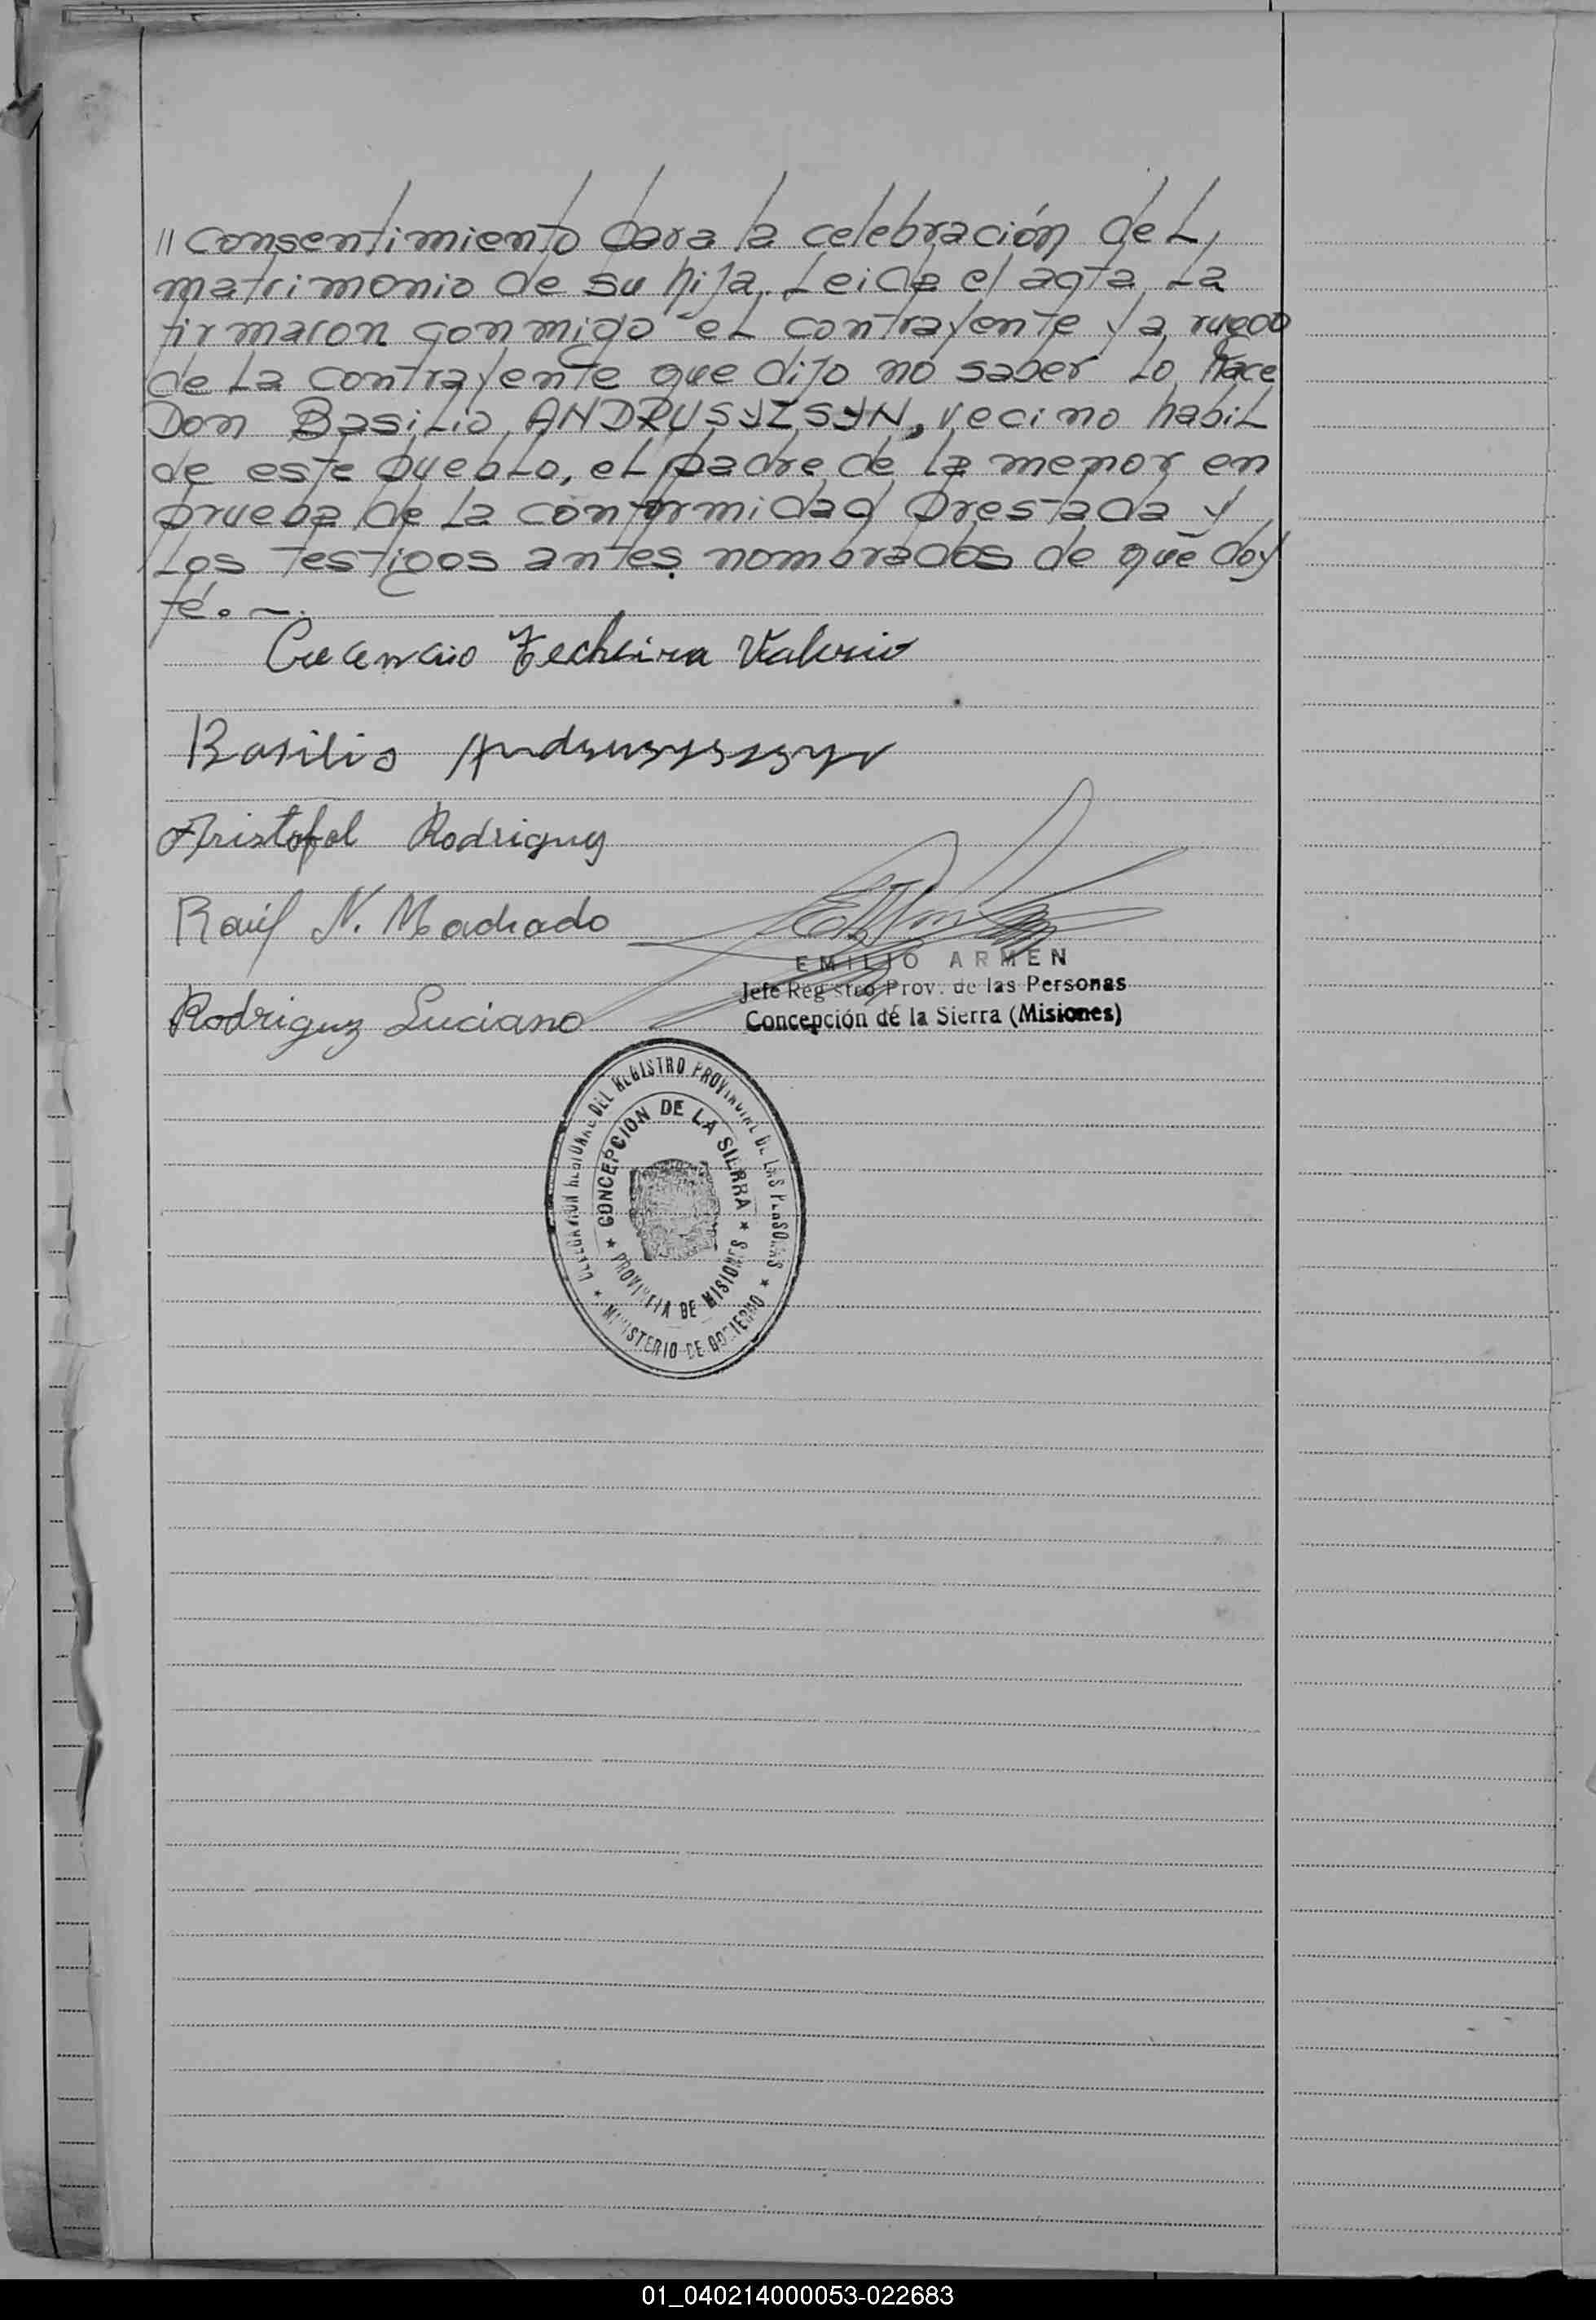 // consentimiento para la celebración del
matrimonio de su hija. Leida el acta La
firmaron conmigo el contrayente y a ruego
de La contrayente que dijo no saber Lo hace
Don Basilio ANDRUSYZSYN, vecino habil
de este pueblo, el padre de la menor en
prueba de La conformidad prestada y
Los testigos antes nombrados de que doy
fé. —.
Techeira Valerio
Basilio Andrusyszsyn
Aristofol Rodriguez
Raúl N. Machado
EMILIO ARMEN
Jefe Registro Prov. de las Personas
Concepción dé la Sierra (Misiones)
Rodriguez Luciano
DELEGACION REGIONAL DEL REGISTRO PROVINCIAL DE LAS PERSONAS
★ MINISTERIO DE GOBIERNO ★
★ CONCEPCION DE LA SIERRA ★
PROVINCIA DE MISIONES
01_040214000053-022683